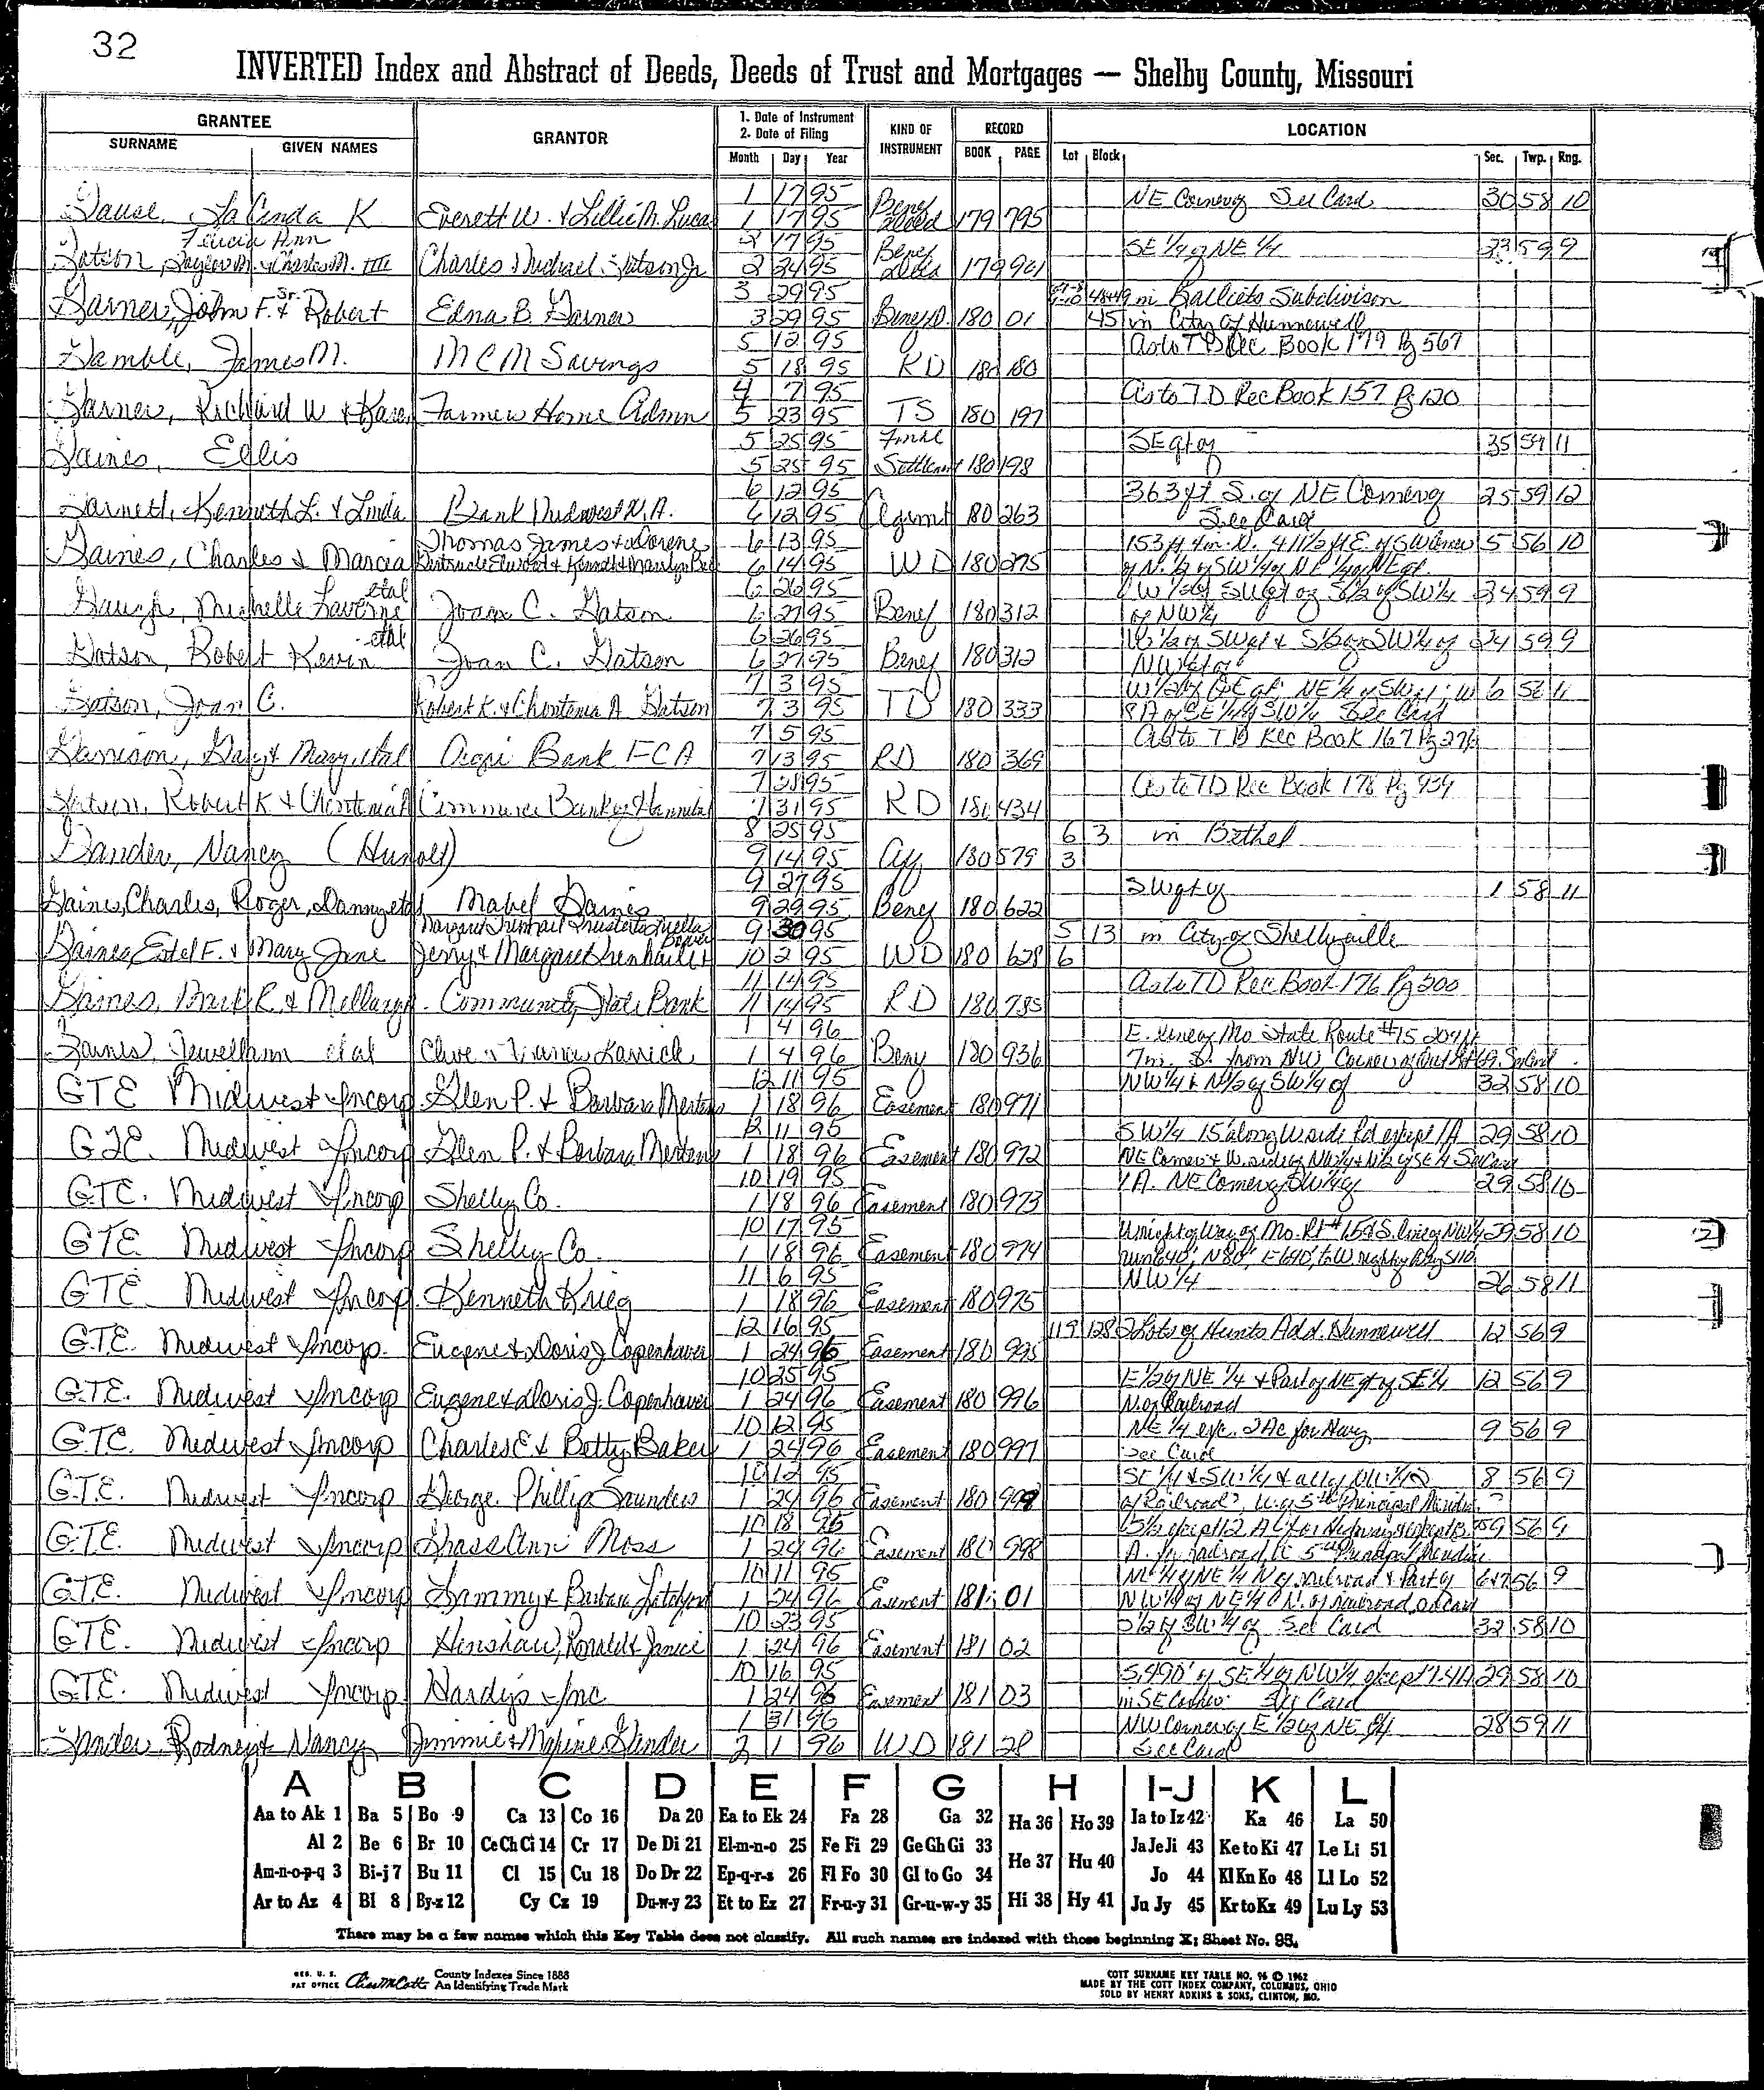 32
INVERTED Index and Abstract of Deeds, Deeds of Trust and Mortgages — Shelby County, Missouri
GRANTEE
SURNAME GIVEN NAMES
GRANTOR
1. Date of Instrument
2. Date of Filing
Month Day Year
KIND OF
INSTRUMENT
RECORD
BOOK PAGE
LOCATION
Lot Block Sec. Twp. Rng.
1 17 95 NE Corner of See Card 30 58 10
Gause, LaCinda K Everett W. & Lillie M. Lucas 1 17 95 Benef Deed 179 795
Felicia Ann 2 17 95 SE 1/4 of NE 1/4 23 59 9
Gatson, Taylor M. & Charles M. IIII Charles Michael Gatson Jr 2 24 95 Benef Deed 179 961
Sr. 3 29 95 in Balliets Subdivison
Garner, John F. & Robert Edna B. Garner 3 29 95 Benef D. 180 01 45 in City of Hunnewell
5 12 95 As to TD Rec Book 179 Pg 567
Gamble, James M. MCM Savings 5 18 95 RD 180 180
4 7 95 As to TD Rec Book 157 Pg 120
Garner, Richard W & Karen Farmers Home Admn 5 23 95 TS 180 197
5 25 95 Final SE qt of 35 59 11
Gaines, Ellis 5 25 95 Settlement 180 198
6 12 95 363 ft S. of NE Corner of 25 59 12
Garnett, Kenneth L. & Linda Bank Midwest N.A. 6 12 95 Agrmt 180 263 See Card
Thomas James & Dorene 6 13 95 153 ft 4 in. N. 411 1/2 ft E. of SW Corner 5 56 10
Gaines, Charles & Marcia 6 14 95 WD 180 275 of N. 1/2 of SW 1/4 of NE 1/4 of NE qt.
etal 6 26 95 W 1/2 of SW qt of S 1/2 of SW 1/4 24 59 9
Gaugh, Michelle Laverne Joan C. Gatson 6 27 95 Benef 180 312 of NW 1/4
etal 6 26 95 W 1/2 of SW qt & S 1/2 of SW 1/4 of 24 59 9
Gatson, Robert Kevin Joan C. Gatson 6 27 95 Benef 180 312 NW qt of
7 3 95 NE 1/4 of SW qt; W 6 56 11
Gatson, Joan C. Robert K. & Chontenia A Gatson 7 3 95 TD 180 333 8 A of SE 1/4 of SW 1/4 See Card
7 5 95 As to TD Rec Book 167 Pg 276
Garrison, Gary & Mary, etal Acqri Bank FCA 7 13 95 RD 180 369
7 28 95 As to TD Rec Book 178 Pg 939
Gatson, Robert K & Chontenia A Commerce Bank of Hannibal 7 31 95 RD 180 434
8 25 95 6 3 in Bethel
Gander, Nancy (Hunolt) 9 14 95 Aff 180 579 3
9 27 95 SW qt of 1 58 11
Gaines, Charles, Roger, Danny etal Mabel Gaines 9 29 95 Benef 180 622
9 30 95 5 13 in City of Shelbyville
Gaines, Estel F. & Mary Jane Jerry & Margaret 10 2 95 WD 180 628 6
11 14 95 As to TD Rec Book 176 Pg 200
Gaines, Mark R. & Mellary Community State Bank 11 14 95 RD 180 785
1 4 96 E. line of Mo State Route #15 204 ft
Gaines, Jewell Ann etal Clive & 1 4 96 Benef 180 936
12 11 95 NW 1/4 & N 1/2 of SW 1/4 of 32 58 10
GTE Midwest Incorp. Glen P. & Barbara Mertens 1 18 96 Easement 180 971
12 11 95 SW 1/4 15' along W side Rd except 1A 29 58 10
GTE. Midwest Incorp Glen P. & Barbara Mertens 1 18 96 Easement 180 972 NE Corner & W. side of NW 1/4 & N 1/2 of SE 1/4 See Card
10 19 95 1A. NE Corner of SW 1/4 of 29 58 10
GTE. Midwest Incorp Shelby Co. 1 18 96 Easement 180 973
10 17 95 W right of Way of Mo. Rt #15 & S. line of NW 1/4 29 58 10
GTE Midwest Incorp Shelby Co. 1 18 96 Easement 180 974 run 640', N 80', E 640', to W. right of Way S 110
11 6 95 NW 1/4 26 58 11
GTE. Midwest Incorp. Kenneth Krieg 1 18 96 Easement 180 975
12 16 95 119 128 2 Lots of Hunts Add. Hunnewell 12 56 9
GTE. Midwest Incorp. Eugene & Doris J. Copenhaver 1 24 96 Easement 180 995
10 25 95 E 1/2 of NE 1/4 & Part of NE qt of SE 1/4 12 56 9
GTE. Midwest Incorp Eugene & Doris J. Copenhaver 1 24 96 Easement 180 996 N. of Railroad
10 12 95 NE 1/4 exc. 2 Ac for Hwy 9 56 9
GTE. Midwest Incorp Charles E & Betty Baker 1 24 96 Easement 180 997 See Card
10 12 95 SE 1/4 & SW 1/4 & all of 8 56 9
G.T.E. Midwest Incorp George Phillip Saunders 1 24 96 Easement 180 999 of Railroad, W. of 5th Principal Meridian
10 18 95 9 56 9
G.T.E. Midwest Incorp Grass Ann Moss 1 24 96 Easement 180 998 A. for railroad 5th Principal Meridian
10 11 95 NE 1/4 N of railroad & Part of 6&7 56 9
GTE. Midwest Incorp Barbara 1 24 96 Easement 181 01 NW 1/4 of NE 1/4 N. of railroad, See Card
10 23 95 S 1/2 of SW 1/4 of See Card 32 58 10
GTE. Midwest Incorp Henshaw, Ronald & Janice 1 24 96 Easement 181 02
10 16 95 S. 990' of SE 1/4 of NW 1/4 except 1.41A 29 58 10
GTE. Midwest Incorp Hardys Inc 1 24 96 Easement 181 03 in SE Corner See Card
1 31 96 NW Corner of E 1/2 of NE 1/4 28 59 11
Gander, Rodney & Nancy Jimmie & Maxine Gander 2 1 96 WD 181 28 See Card
A B C D E F G H I-J K L
Aa to Ak 1 Ba 5 Bo 9 Ca 13 Co 16 Da 20 Ea to Ek 24 Fa 28 Ga 32 Ha 36 Ho 39 Ia to Iz 42 Ka 46 La 50
Al 2 Be 6 Br 10 Ce Ch Ci 14 Cr 17 De Di 21 El-m-n-o 25 Fe Fi 29 Ge Gh Gi 33 He 37 Hu 40 Ja Je Ji 43 Ke to Ki 47 Le Li 51
Am-n-o-p-q 3 Bi-j 7 Bu 11 Cl 15 Cu 18 Do Dr 22 Ep-q-r-s 26 Fl Fo 30 Gl to Go 34 Jo 44 Kl Kn Ko 48 Ll Lo 52
Ar to Az 4 Bl 8 By-z 12 Cy Cz 19 Du-w-y 23 Et to Ez 27 Fr-u-y 31 Gr-u-w-y 35 Hi 38 Hy 41 Ju Jy 45 Kr to Kz 49 Lu Ly 53
There may be a few names which this Key Table does not classify. All such names are indexed with those beginning X; Sheet No. 95.
REG. U. S. PAT OFFICE County Indexes Since 1888
An Identifying Trade Mark
COTT SURNAME KEY TABLE NO. 96 © 1962
MADE BY THE COTT INDEX COMPANY, COLUMBUS, OHIO
SOLD BY HENRY ADKINS & SONS, CLINTON, MO.